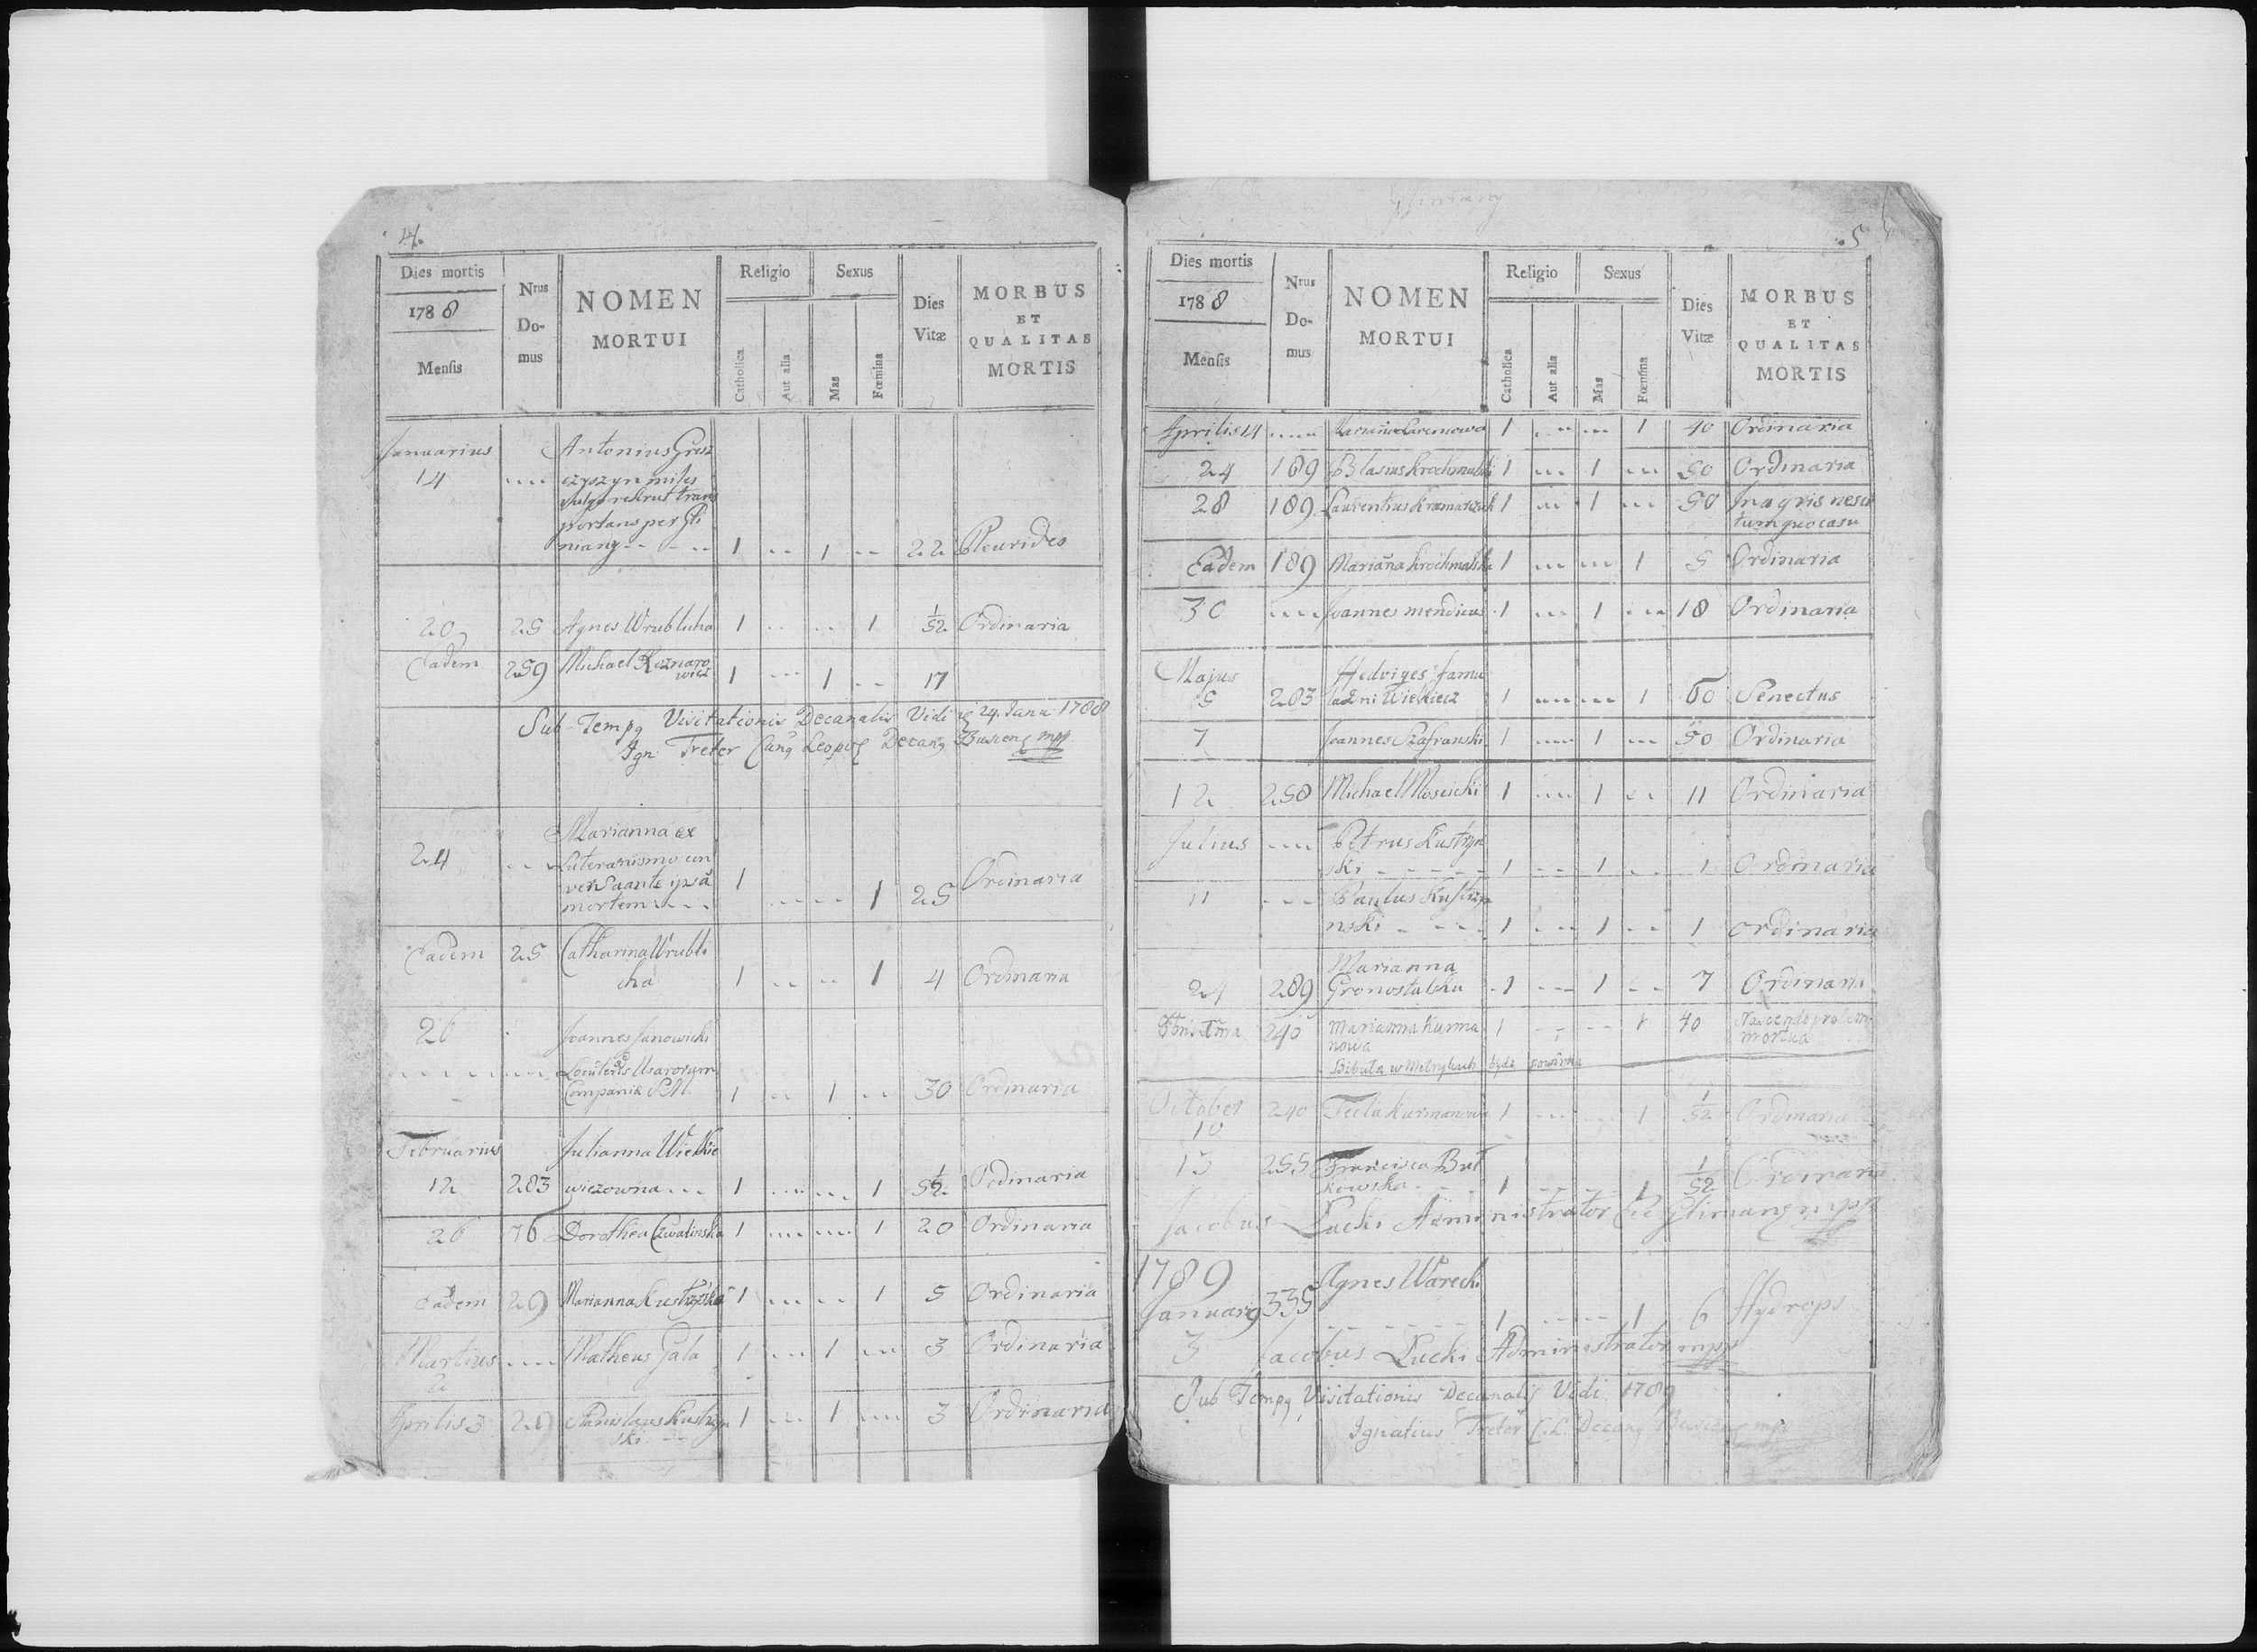 4.
Dies mortis
1788
Mensis
Nrus
Do-
mus
NOMEN
MORTUI
Religio
Catholica
Aut alia
Sexus
Mas
Fœmina
Dies
Vitæ
MORBUS
ET
QUALITAS
MORTIS
Januarius Antonius Gresz
14 .... czyszyn miles
vulgo rekrut trans
portans per Gli
niany -- - -- 1 -- 1 -- 22 Pleurides
20 25 Agnes Wrublicha 1 -- -- 1 1/52 Ordinaria
Eadem 259 Michael
wicz 1 --- 1 -- 17
Sub Tempq Visitationis Decanalis Vidi 24. Janu 1788
Ign: Treter Canq Leopol Decanq Buscens mpp
Marianna ex
24 -- Luteranismo con
versa ante ipsã 1 Ordinaria
mortem ---- ---- 1 25
Eadem 25 Catharina Wrubli
cha 1 -- -- 1 4 Ordinaria
26 Joannes Janowicki
Usarorum
Compania 1 -- 1 -- 30 Ordinaria
Februarius Julianna Wielkie
12 283 wiczowna --- 1 ---- --- 1 1/52 Ordinaria
26 76 Dorothea Czwalinska 1 ---- ---- 1 20 Ordinaria
eadem 29 Marianna Kustrzyska 1 --- -- 1 5 Ordinaria
Martius ---- Matheus Gala 1 --- 1 --- 3 Ordinaria
2
Aprilis 3 29 Stanislaus Kustrzyn 1 --- 1 ---- 3 Ordinaria
ski --
Gliniany
5
Dies mortis
1788
Mensis
Nrus
Do-
mus
NOMEN
MORTUI
Religio
Catholica
Aut alia
Sexus
Mas
Fœmina
Dies
Vitæ
MORBUS
ET
QUALITAS
MORTIS
Aprilis 14 ..... 1 --- --- 1 40 Ordinaria
24 189 Blasius Krochmalski 1 --- 1 --- 50 Ordinaria
28 189 Laurentius Kramarczuk 1 --- 1 --- 50 In agris nesci
tum quo casu
Eadem 189 Mariãna Krochmalska 1 --- --- 1 5 Ordinaria
30 ---- Joannes mendicus 1 --- 1 --- 18 Ordinaria
Majus Hedviges famu
5 283 Wielkiecz 1 ---- --- 1 60 Senectus
7 Joannes Szafranski 1 ---- 1 --- 50 Ordinaria
12 258 Michael Moscicki 1 ---- 1 -- 11 Ordinaria
Julius ---- Petrus Kustrzyn
ski - - - - - 1 --- 1 -- 1 Ordinaria
11 --- Paulus Kustrzy
nski - - -- 1 --- 1 -- 1 Ordinaria
Marianna
24 289 Gronostalska 1 --- 1 -- 7 Ordinari
240 Marianna Kurma 1 - - -- 1 40
nowa mortua
Bibuła w Metrykach
October 240 Tecla Kurmanowa 1 --- 1 1/52 Ordinaria
10
13 255 Francisca But
kowska - - 1 ---- 1 1/52 Ordinaria
Jacobus Łucki Administrator Glinianq mpp
1789 Agnes Warecki
Januarq 335 1 ---- 1 6 Hydrops
3 Jacobus Łucki Administrator mpp
Sub Tempq Visitationis Decanalis Vidi 1789
Ignatius Treter C.L. Decanq Buscens mp